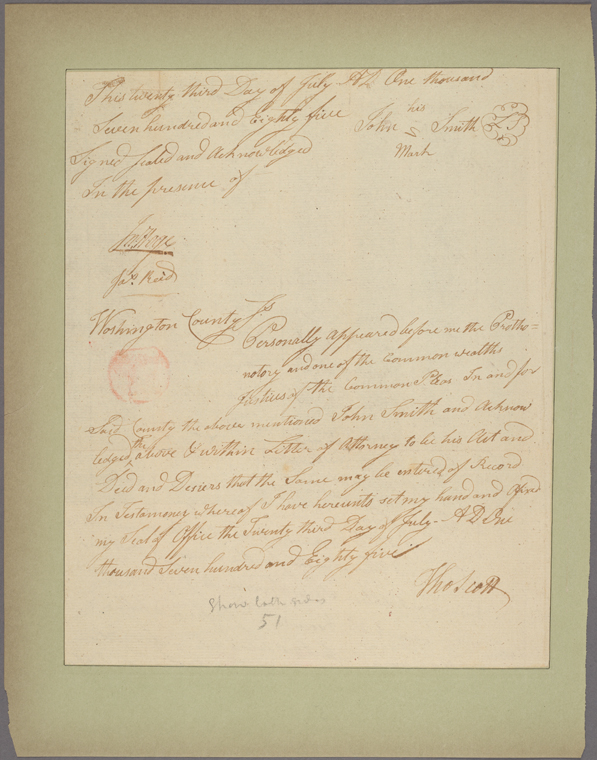 This twenty third Day of July AD One thousand
Seven hundred and Eighty five
John his Smith
Mark
Signed Sealed and Acknowledged
In the presence of
Jas Reed
Washington County Ss
Personally appeared before me the Protho=
notory and one of the Common wealths
justices of the Common Pleas In and for
Said County the above mentioned John Smith and Acknow
ledged the above & within Letter of Attorney to be his Act and
Deed and Desiers that the Same may be entered of Record
In Testamoney whereof I have hereunto set my hand and
my Seal of Office the Twenty third Day of July - AD One
thousand Seven hundred and Eighty five
Tho Scott
Show both sides
51